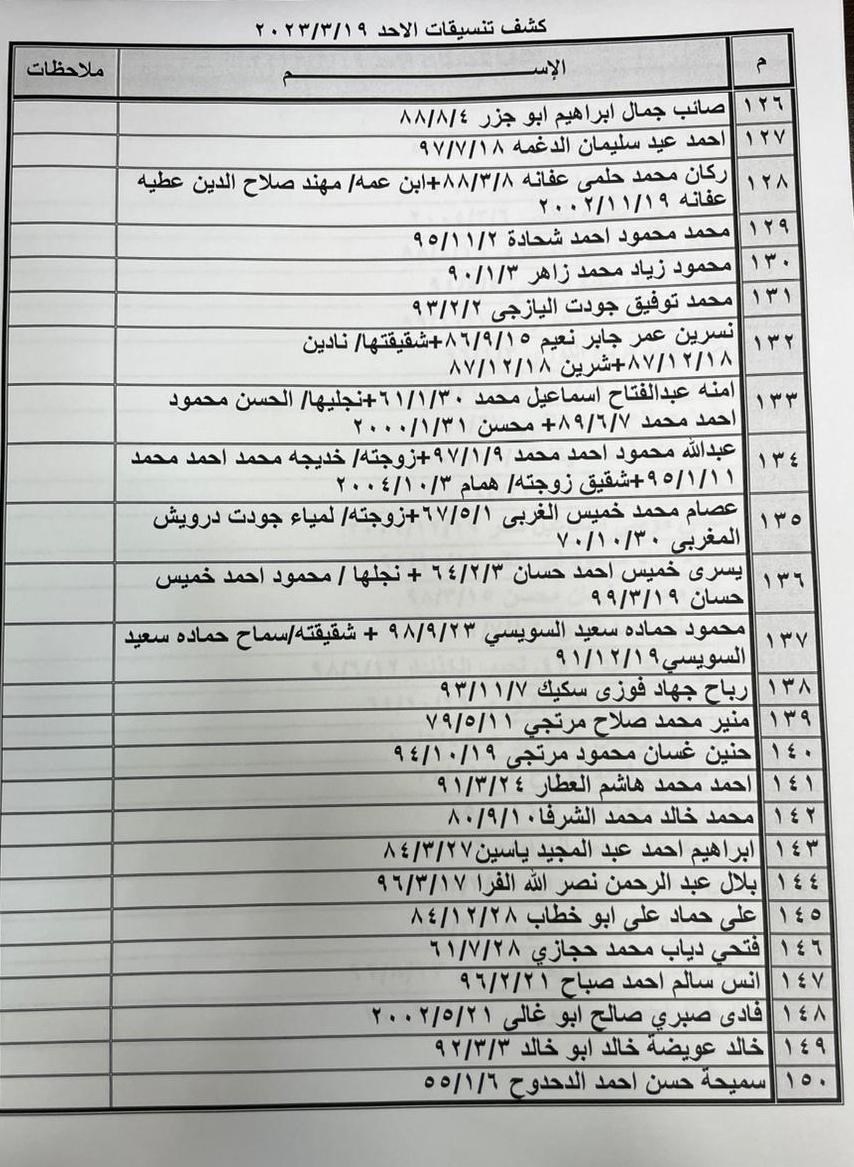 كشف تنسيقات الاحد ٢٠٢٣/٣/١٩
م الإســـــــــم ملاحظات
١٢٦ صائب جمال ابراهيم ابو جزر ٨٨/٨/٤
١٢٧ احمد عيد سليمان الدغمه ٩٧/٧/١٨
١٢٨ ركان محمد حلمى عفانه ٨٨/٣/٨+ابن عمه/ مهند صلاح الدين عطيه
عفانه ٢٠٠٢/١١/١٩
١٢٩ محمد محمود احمد شحادة ٩٥/١١/٢
١٣٠ محمود زياد محمد زاهر ٩٠/١/٣
١٣١ محمد توفيق جودت اليازجى ٩٣/٢/٢
١٣٢ نسرين عمر جابر نعيم ٨٦/٩/١٥+شقيقتها/ نادين
٨٧/١٢/١٨+شرين ٨٧/١٢/١٨
١٣٣ امنه عبدالفتاح اسماعيل محمد ٦١/١/٣٠+نجليها/ الحسن محمود
احمد محمد ٨٩/٦/٧+ محسن ٢٠٠٠/١/٣١
١٣٤ عبدالله محمود احمد محمد ٩٧/١/٩+زوجته/ خديجه محمد احمد محمد
٩٥/١/١١+شقيق زوجته/ همام ٢٠٠٤/١٠/٣
١٣٥ عصام محمد خميس الغربى ٦٧/٥/١+زوجته/ لمياء جودت درويش
المغربى ٧٠/١٠/٣٠
١٣٦ يسرى خميس احمد حسان ٦٤/٢/٣ + نجلها / محمود احمد خميس
حسان ٩٩/٣/١٩
١٣٧ محمود حماده سعيد السويسي ٩٨/٩/٢٣ + شقيقته/سماح حماده سعيد
السويسي٩١/١٢/١٩
١٣٨ رباح جهاد فوزى سكيك ٩٣/١١/٧
١٣٩ منير محمد صلاح مرتجي ٧٩/٥/١١
١٤٠ حنين غسان محمود مرتجى ٩٤/١٠/١٩
١٤١ احمد محمد هاشم العطار ٩١/٣/٢٤
١٤٢ محمد خالد محمد الشرفا٨٠/٩/١٠
١٤٣ ابراهيم احمد عبد المجيد ياسين٨٤/٣/٢٧
١٤٤ بلال عبد الرحمن نصر الله الفرا ٩٦/٣/١٧
١٤٥ على حماد على ابو خطاب ٨٤/١٢/٢٨
١٤٦ فتحي دياب محمد حجازي ٦١/٧/٢٨
١٤٧ انس سالم احمد صباح ٩٦/٢/٢١
١٤٨ فادى صبري صالح ابو غالى ٢٠٠٢/٥/٢١
١٤٩ خالد عويضة خالد ابو خالد ٩٢/٣/٣
١٥٠ سميحة حسن احمد الدحدوح ٥٥/١/٦